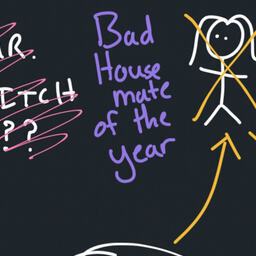 R.
ETCH
??
Bad
House
mate
of the
year